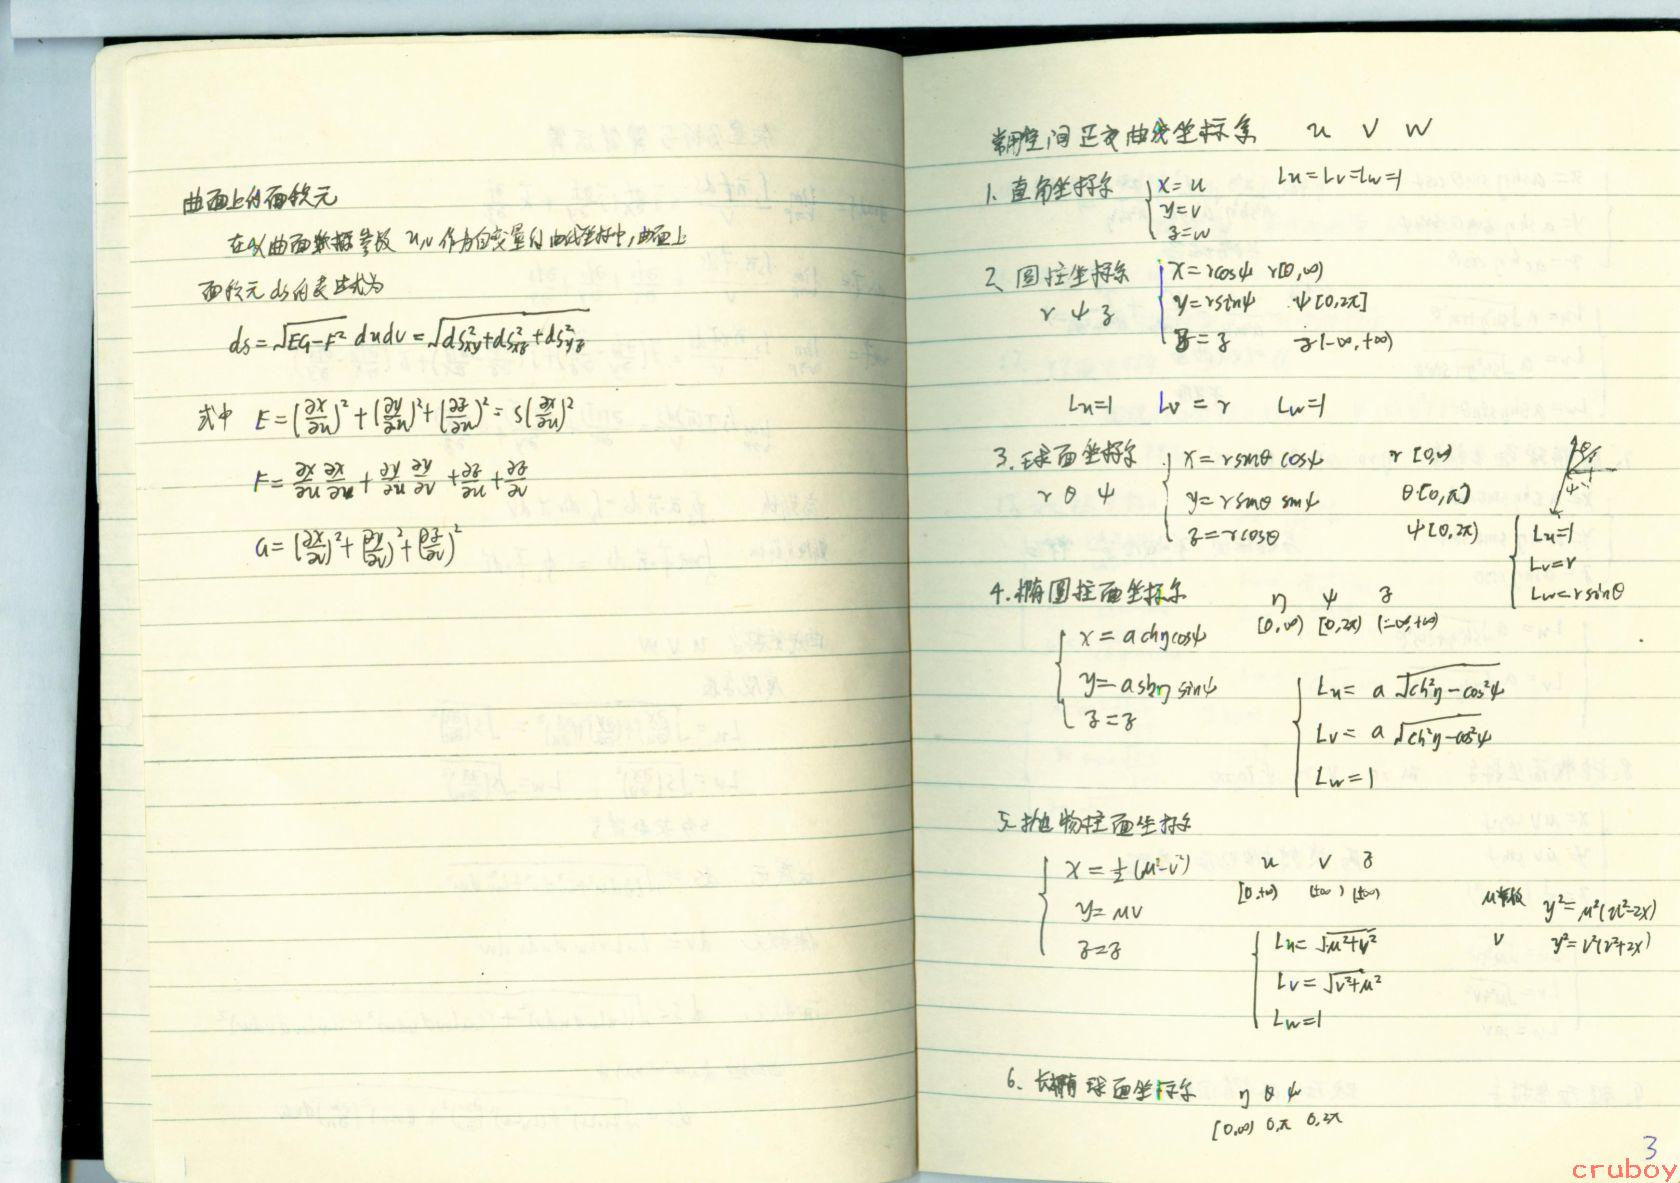 曲面上的面积元
在以曲面坐标参数 u,v 作为自变量的曲线坐标中,曲面上
面积元 ds 的表达式为
ds = √(EG-F²) du dv = √(ds²xy + ds²xz + ds²yz)
式中 E = (∂x/∂u)² + (∂y/∂u)² + (∂z/∂u)² = S(∂x/∂u)²
F = ∂x/∂u ∂x/∂u + ∂y/∂u ∂y/∂v + ∂z/∂u + ∂z/∂v
G = (∂x/∂v)² + (∂y/∂v)² + (∂z/∂v)²
常用空间正交曲线坐标系 u v w
1. 直角坐标系 { x=u Lu=Lv=Lw=1
y=v
z=w
2、圆柱坐标系 { x=rcosψ r[0,∞)
r ψ z y=rsinψ ψ[0,2π]
z=z z(-∞,+∞)
Lu=1 Lv=r Lw=1
3. 球面坐标系 { x=rsinθcosψ r[0,∞)
r θ ψ y=rsinθ sinψ θ[0,π]
z=rcosθ ψ[0,2π)
{ Lu=1
Lv=r
Lw=rsinθ
4. 椭圆柱面坐标系 η ψ z
[0,∞) [0,2π) (-∞,+∞)
{ x=a chη cosψ
y=a shη sinψ
z=z
{ Lu= a √(ch²η-cos²ψ)
Lv= a √(ch²η-cos²ψ)
Lw=1
5. 抛物柱面坐标系
{ x=½(u²-v²) u v z
[0,+∞) (±∞) (±∞)
y=uv
z=z
u常数 y²=u²(u²-2x)
v y²=v²(v²+2x)
{ Lu=√(u²+v²)
Lv=√(v²+u²)
Lw=1
6. 长椭球面坐标系 η θ ψ
[0,∞) 0,π 0,2π
3
cruboy